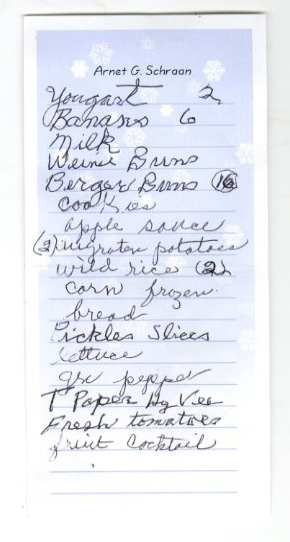 Arnet G. Schraan
Yougart 2
Bananas 6
Milk
Weine Buns
Berger Buns 16
Cookies
apple sauce
(2) augraten potatoes
wild rice (2)
corn frozen
bread
Pickles Slices
Lettuce
gr pepper
T Paper
Fresh tomatoes
fruit Cocktail